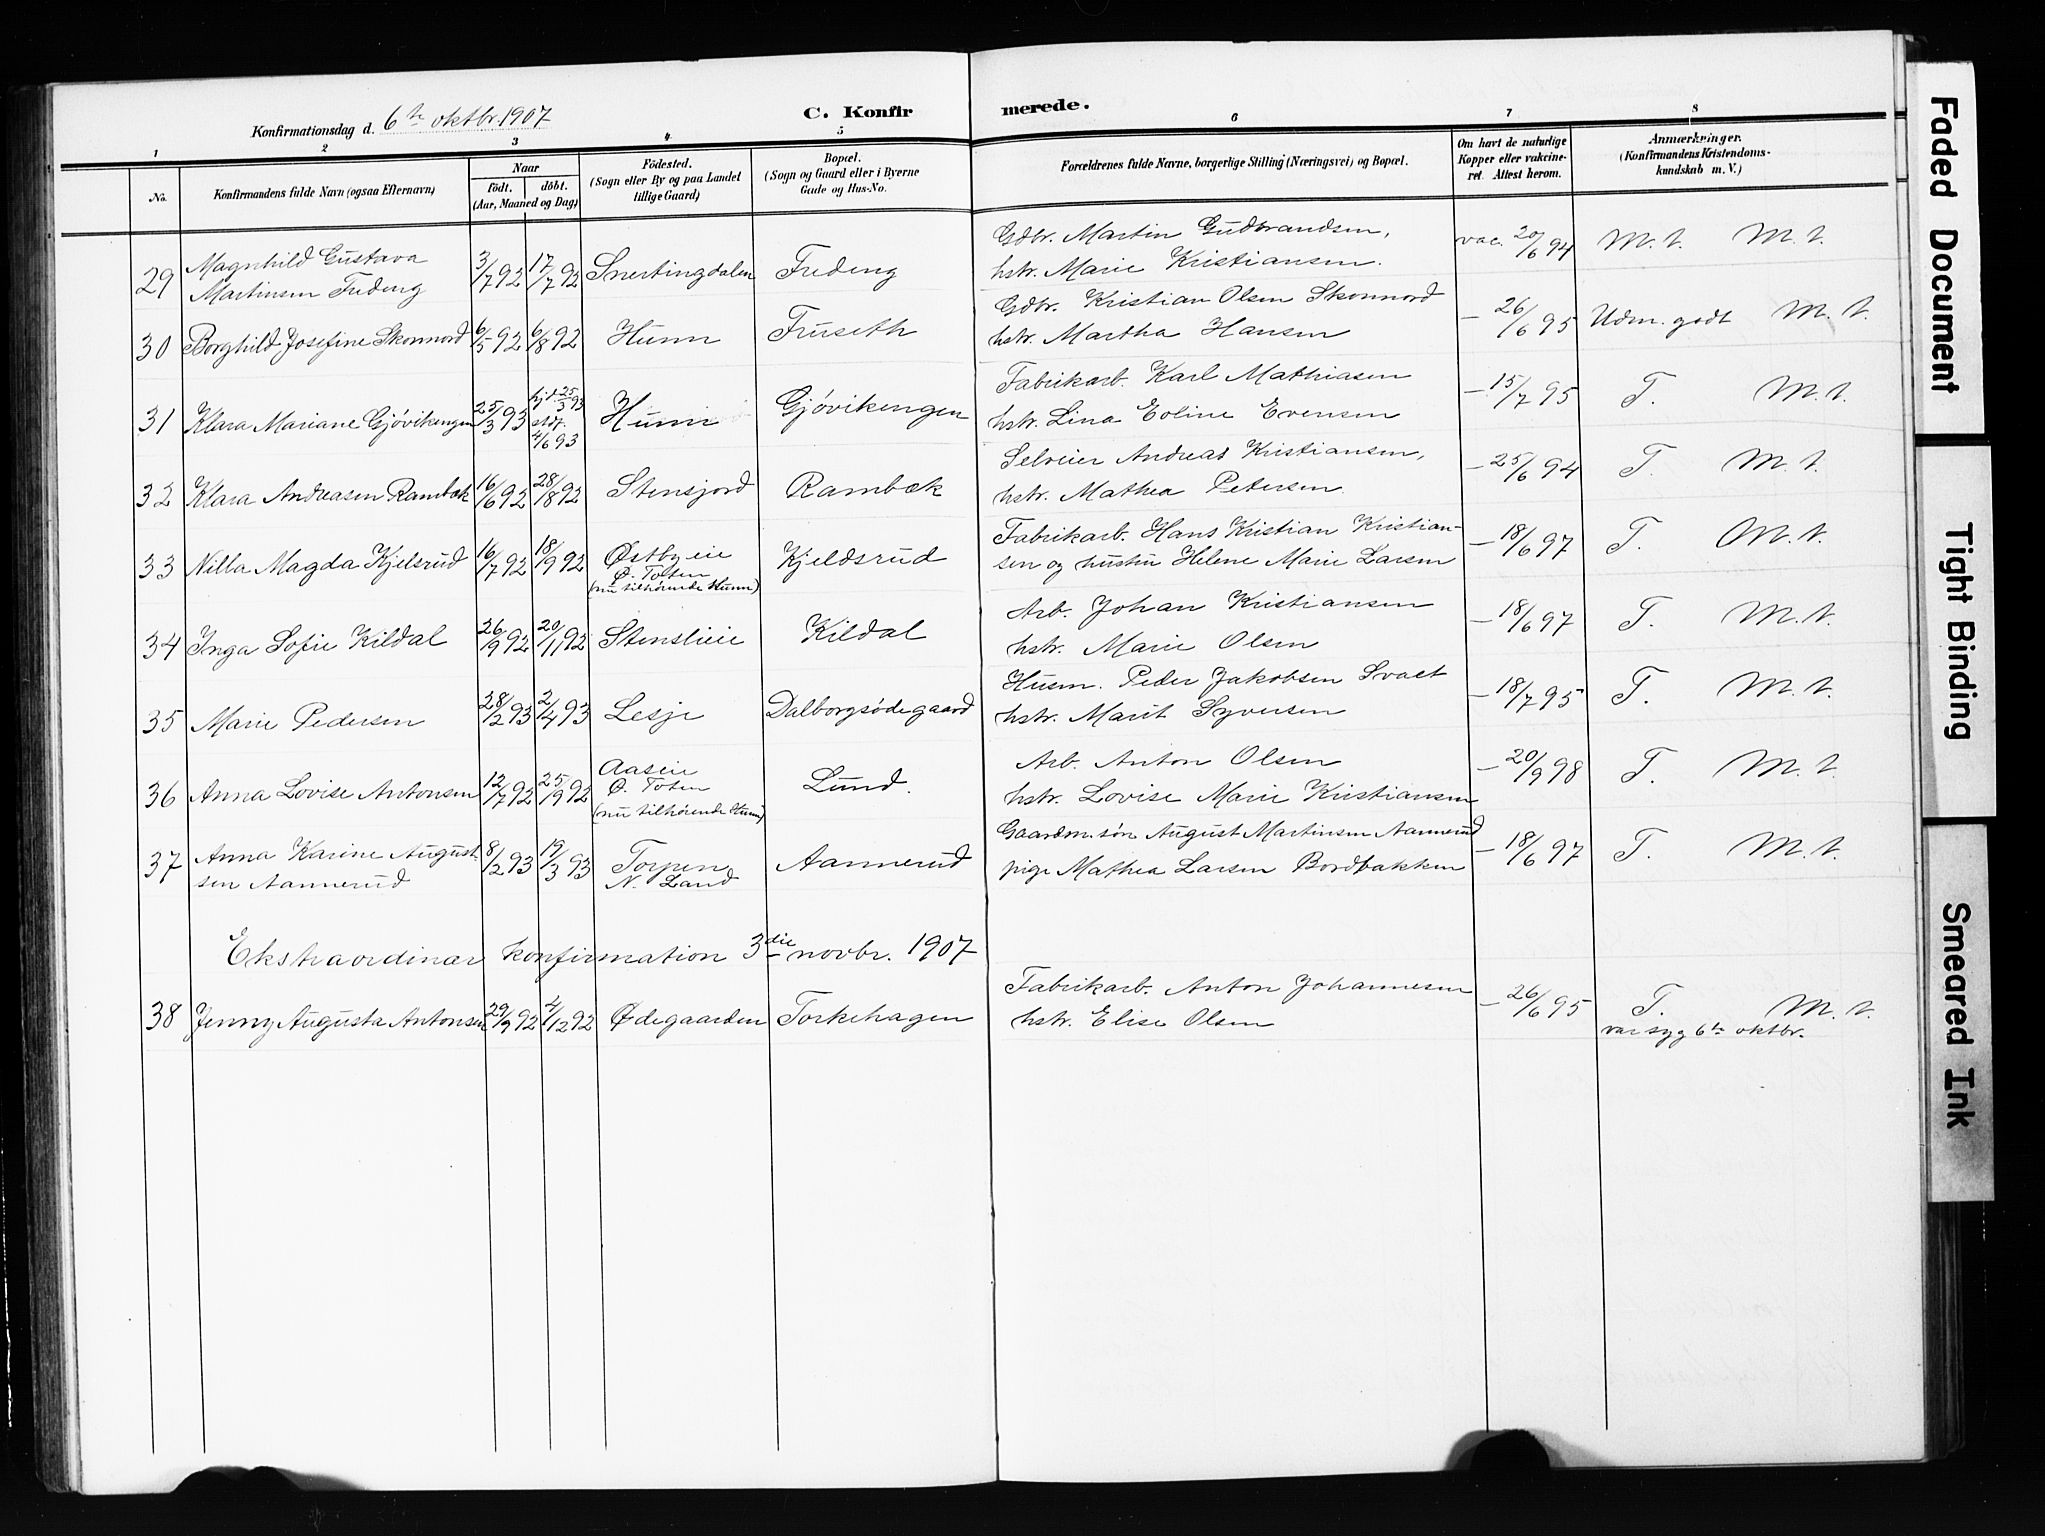 Konfirmationsdag d. 6te oktbr 1907
C. Konfirmerede.
1 2 3 4 5 6 7 8
No.
Konfirmandens fulde Navn (ogsaa Efternavn)
Naar
født. døbt.
(Aar, Maaned og Dag)
Fødested.
(Sogn eller By og paa Landet
tillige Gaard)
Bopæl.
(Sogn og Gaard eller i Byerne
Gade og Hus-No.
Forældrenes fulde Navne, borgerlige Stilling (Næringsvei) og Bopæl.
Om havt de naturlige
Kopper eller vakcine-
ret. Attest herom.
Anmærkninger.
(Konfirmandens Kristendoms-
kundskab m. V.)
29 Magnhild Gustava
Martinsen Fredeng 3/7 92 17/7 92 Snertingdalen Fredeng
Gdbr. Martin Gudbrandsen,
hstr. Marie Kristiansen. vac. 20/6 94 M. t. M. t.
30 Borghild Josefine Skonnord 6/5 92 6/8 92 Hunn Fuseth
Gdbr. Kristian Olsen Skonnord
hstr. Martha Hansen – 26/6 95 Udm. godt M. t.
31 Klara Mariane Gjøvikengen 25/3 93 hjd 25/3 93
stdf.
4/6 93 Hunn Gjøvikengen
Fabrikarb. Karl Mathiasen
hstr. Lina Eoline Evensen – 15/7 95 T. M. t.
32 Klara Andreasen Rambæk 16/6 92 28/8 92 Stensjord Rambæk
Selveier Andreas Kristiansen,
hstr. Mathea Petersen. – 25/6 94 T. M. t.
33 Nilla Magda Kjelsrud 16/7 92 18/9 92 Østby eie
Ø. Toten
(nu tilhørende Hunn) Kjeldsrud
Fabrikarb. Hans Kristian Kristian-
sen og hustru Helene Marie Larsen – 18/6 97 T. M. t.
34 Inga Sofie Kildal 26/9 92 20/11 92 Stenslieie Kildal
Arb. Johan Kristiansen
hstr. Marie Olsen – 18/6 97 T. M. t.
35 Marie Pedersen 28/2 93 2/4 93 Lesje Dalborgsødegaard
Husm. Peder Jakobsen Svaet
hstr. Marit Syversen – 18/7 95 T. M. t.
36 Anna Lovise Antonsen 12/7 92 25/9 92 Aaseie
Ø. Toten
(nu tilhørende Hunn) Lund.
Arb. Anton Olsen
hstr. Lovise Marie Kristiansen – 20/9 98 T. M. t.
37 Anna Karine August-
sen Aannerud 8/2 93 19/3 93 Torpen
N. Land Aannerud
Gaardm. søn August Martinsen Aannerud
pige Mathea Larsen Bordbakken – 18/6 97 T. M. t.
Ekstraordinær konfirmation 3die novbr. 1907
38 Jenny Augusta Antonsen 29/9 92 4/12 92 Ødegaarden Torkehagen
Fabrikarb. Anton Johannesen
hstr. Elise Olsen – 26/6 95 T. M. t.
var syg 6te oktbr.
Faded Document
Tight Binding
Smeared Ink